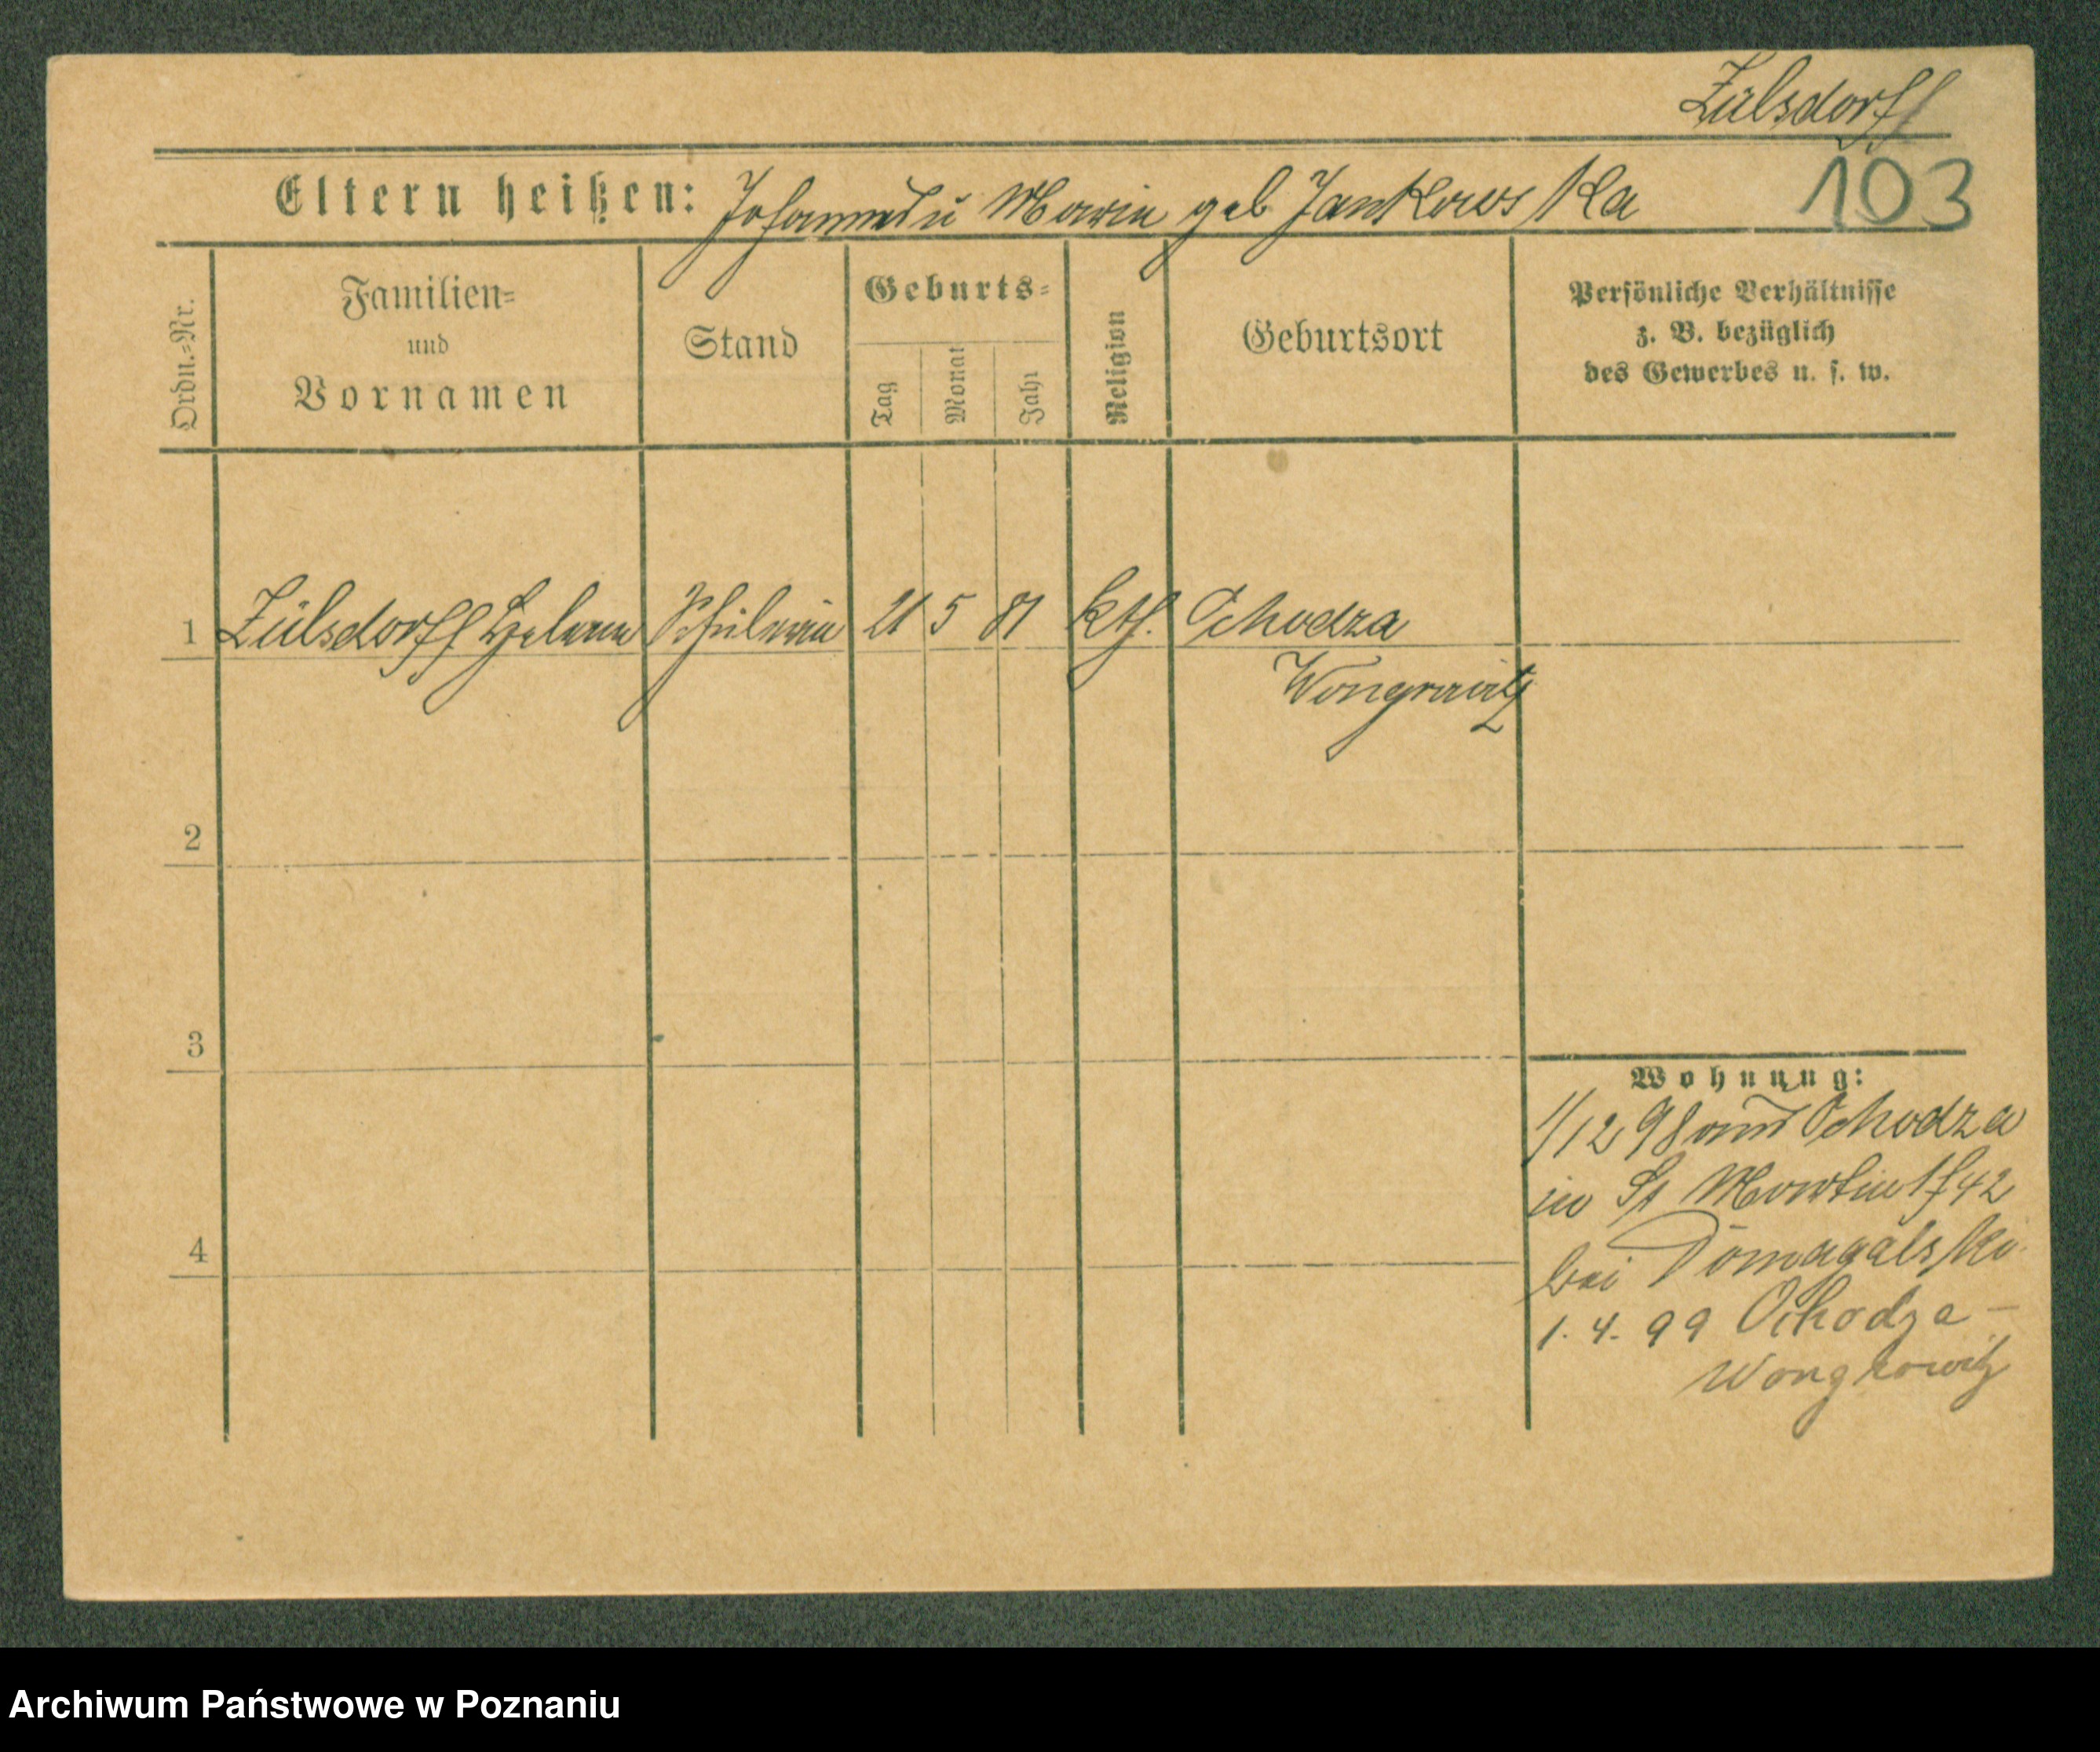 Zülsdorff
Eltern heißen: Johannes u Marie geb Jankowska
103
Ordn.-Nr.
Familien-
und
Vornamen
Stand
Geburts-
Tag
Monat
Jahr
Religion
Geburtsort
Persönliche Verhältnisse
z. B. bezüglich
des Gewerbes u. s. w.
1 Zülsdorff Helene Schülerin 21 5 81 kth. Ochodza
Wongrowitz
2
3
4
Wohnung:
1/12 98 aus Ochodza
in St Martin 42
bei Domagalski
1. 4. 99 Ochodza -
Wongrowitz
Archiwum Państwowe w Poznaniu